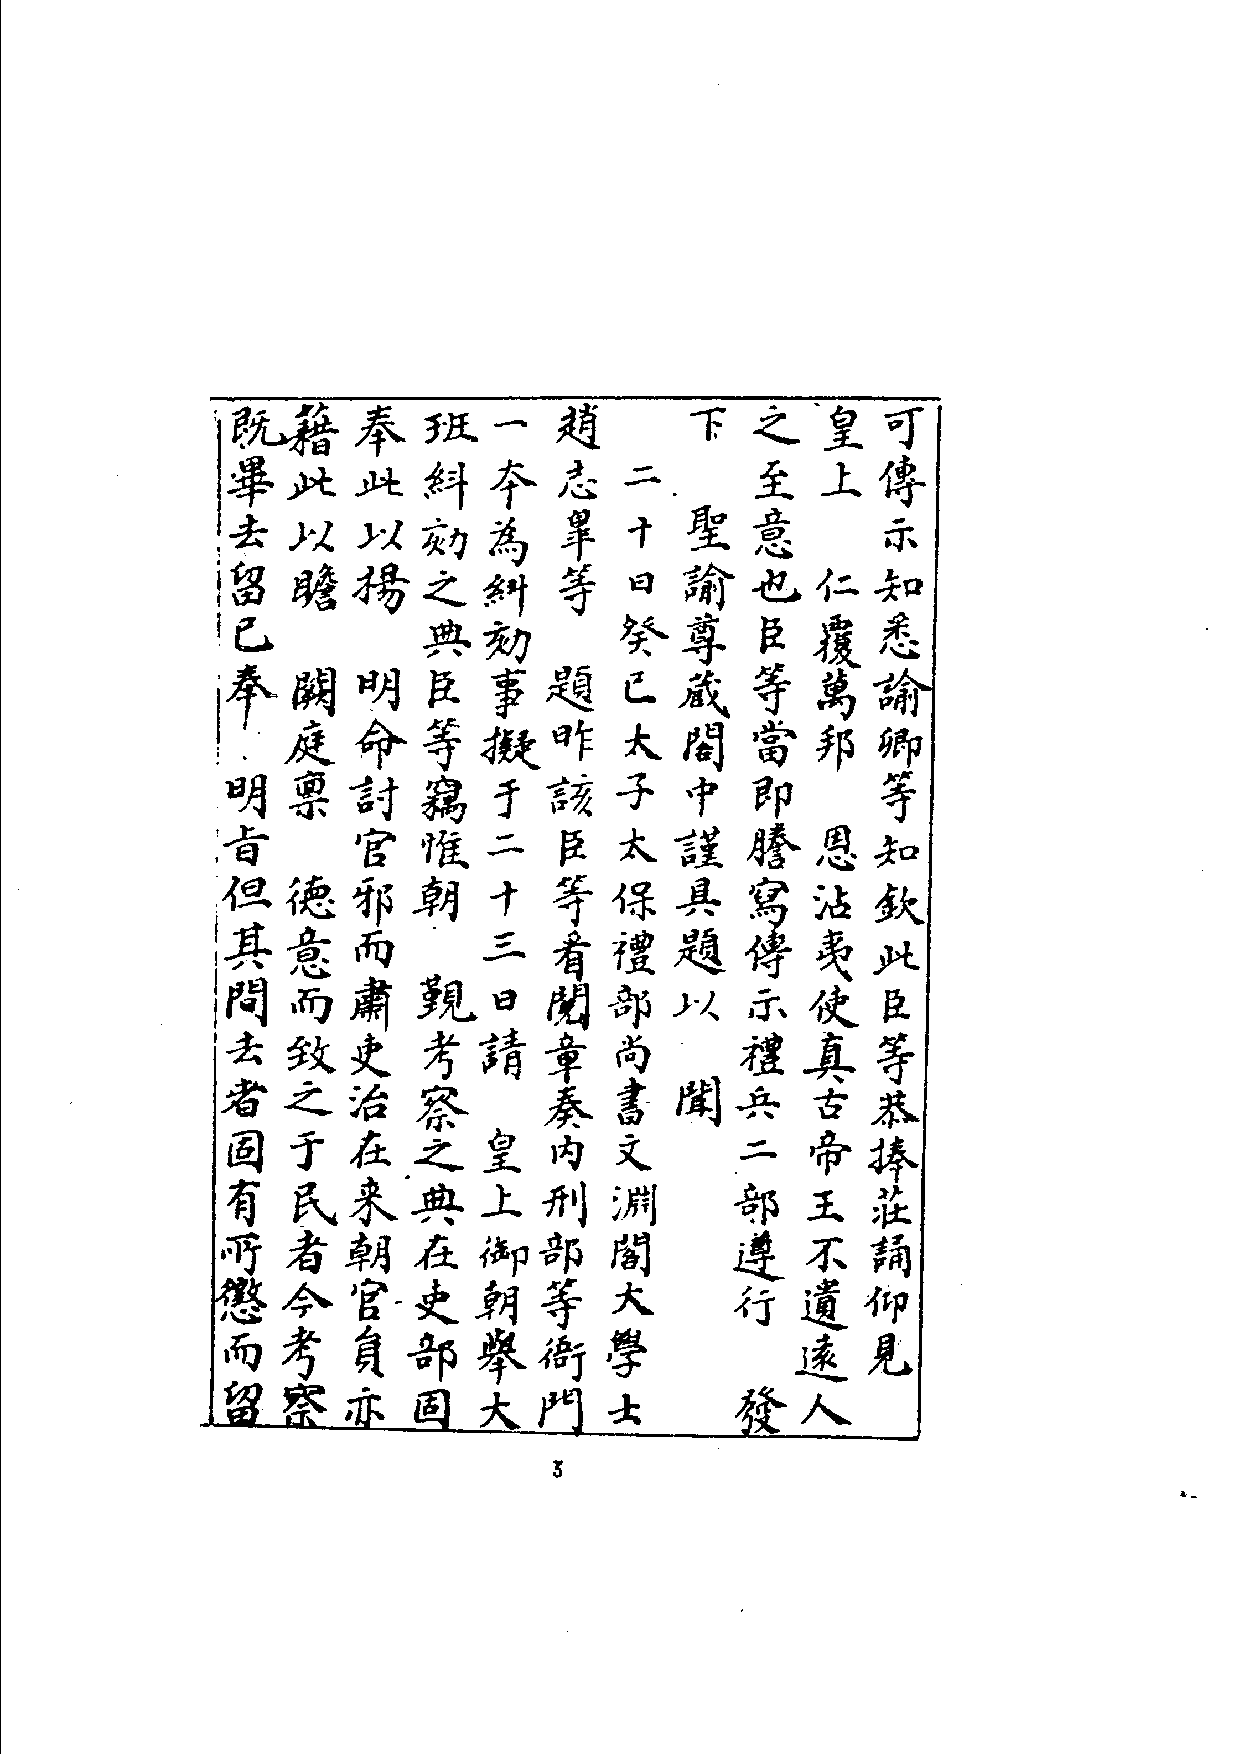 可傳示知悉諭卿等知欽此臣等恭捧莊誦仰見
皇上　仁覆萬邦　恩沾夷使真古帝王不遺遠人
之至意也臣等當即謄寫傳示禮兵二部遵行　發
下　聖諭尊藏閣中謹具題以　聞
二十日癸巳太子太保禮部尚書文淵閣大學士
趙志皐等　題昨該臣等看閱章奏内刑部等衙門
一本為糾劾事擬于二十三日請　皇上御朝舉大
班糾劾之典臣等竊惟朝　覲考察之典在吏部固
奉此以揚　明命討官邪而肅吏治在来朝官員亦
藉此以瞻　闕庭禀　德意而致之于民者今考察
既畢去留已奉　明旨但其間去者固有所懲而留
3